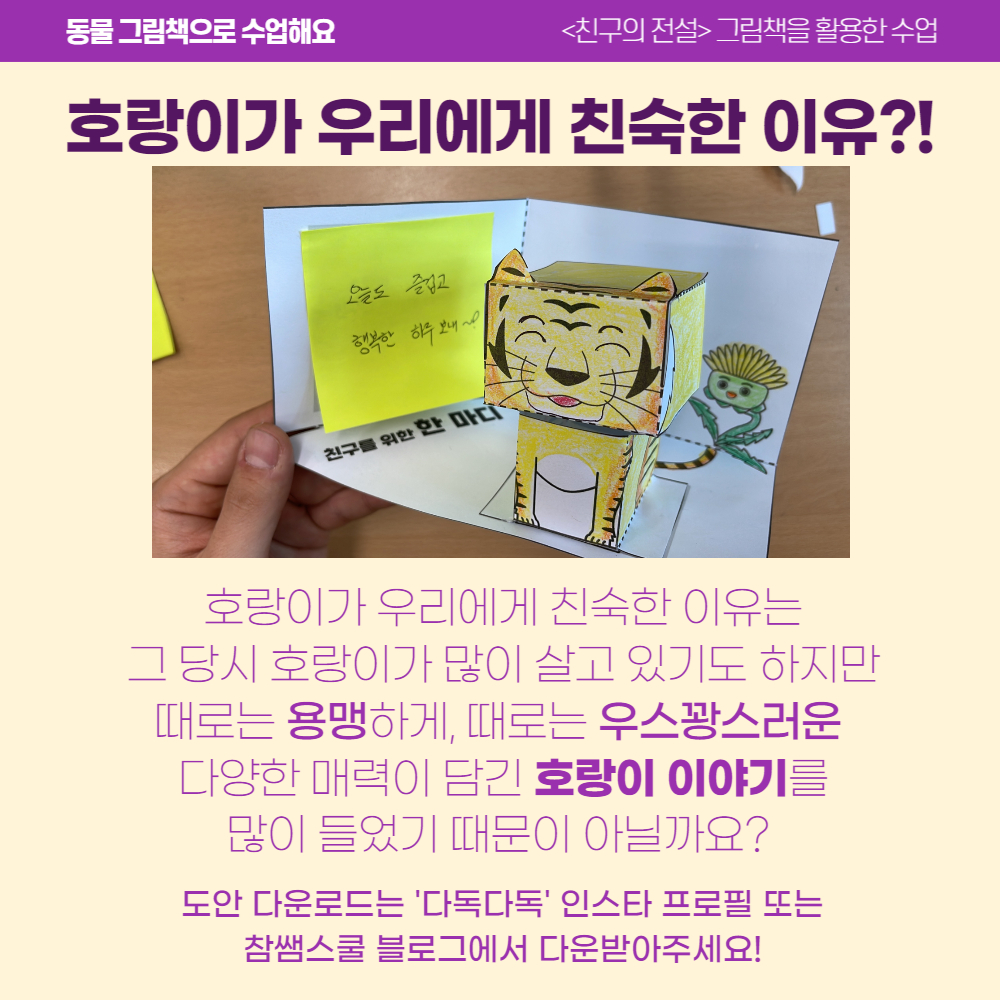 동물 그림책으로 수업해요
<친구의 전설> 그림책을 활용한 수업
호랑이가 우리에게 친숙한 이유?!
오늘도 즐겁고
행복한 하루 보내~!
친구를 위한 한 마디
호랑이가 우리에게 친숙한 이유는
그 당시 호랑이가 많이 살고 있기도 하지만
때로는 용맹하게, 때로는 우스꽝스러운
다양한 매력이 담긴 호랑이 이야기를
많이 들었기 때문이 아닐까요?
도안 다운로드는 '다독다독' 인스타 프로필 또는
참쌤스쿨 블로그에서 다운받아주세요!